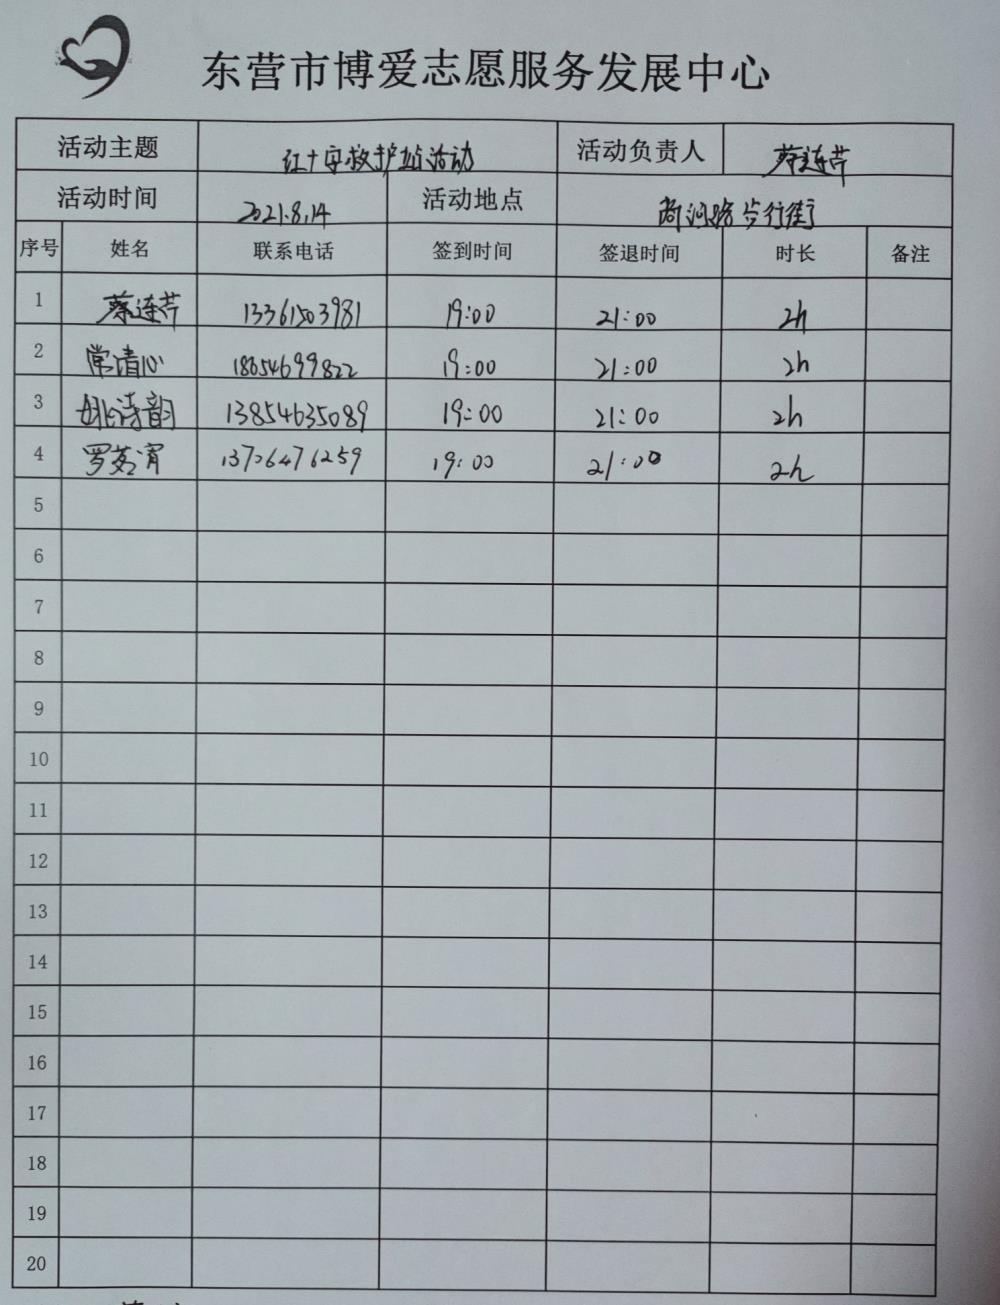 东营市博爱志愿服务发展中心
活动主题 红十字救护站活动 活动负责人 蔡连芹
活动时间 2021.8.14 活动地点 商河路步行街
序号 姓名 联系电话 签到时间 签退时间 时长 备注
1 蔡连芹 13361503981 19:00 21:00 2h
2 常清心 18654699822 19:00 21:00 2h
3 姚诗韵 13854635089 19:00 21:00 2h
4 罗 13706476259 19:00 21:00 2h
5
6
7
8
9
10
11
12
13
14
15
16
17
18
19
20